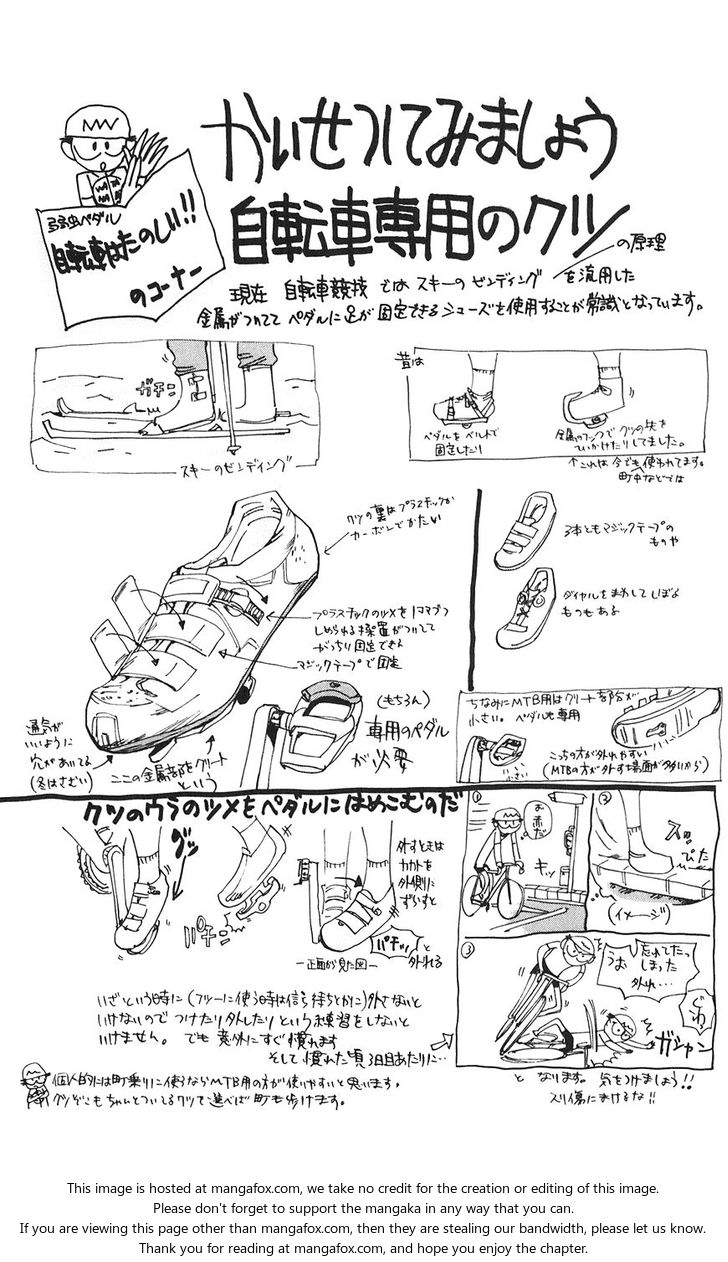 かいせつしてみましょう
自転車専用のクツ
の原理
弱虫ペダル
自転車はたのしい!!
のコーナー
現在 自転車競技 では スキーの ビンディング を流用した
金属がついてて ペダルに足が固定できるシューズを使用することが常識となっています。
ガチン
スキーのビンディング
昔は
ペダルを ベルトで
固定したり
金属のフックで クツの先を
ひっかけたりしてました。
↑これは 今でも使われてます。
町中などでは
クツの裏はプラスチックか
カーボンでかたい
プラスチックのツメを1コマずつ
しめられる装置がついてて
がっちり固定できる
マジックテープで固定
3本ともマジックテープの
ものや
ダイヤルをまわしてしぼる
ものもある
通気が
いいように
穴があいてる
(冬はさむい)
ここの金属部をクリート
という
(もちろん)
専用のペダル
が必要
ちなみにMTB用はクリート部分が
小さい。ペダルも専用
小さい
こっちの方が外れやすい
(MTBの方が外す場面が多いから)
クツのウラのツメをペダルにはめこむのだ
グッ
パチン
外すときは
カカトを
外側に
ずらすと
パチッ と
外れる
ー正面から見た図ー
①
お
赤だ
キッ
②
スッ
ぴた
(イメージ)
③
うお
忘れてたっ
しまった
外れ…
ぐわ
ガシャン
いざという時に(フツーに使う時は信号待ちとかに)外さないと
いけないので つけたり外したり という練習をしないと
いけません。 でも 意外にすぐ慣れます
そして慣れた頃 3日目あたりに…
と なります。 気をつけましょう!!
スリ傷にまけるな!!
個人的には町乗りに使うならMTB用の方が使いやすいと思います。
クツぞこもちゃんとついてるクツで選べば 町も歩けます。
This image is hosted at mangafox.com, we take no credit for the creation or editing of this image.
Please don't forget to support the mangaka in any way that you can.
If you are viewing this page other than mangafox.com, then they are stealing our bandwidth, please let us know.
Thank you for reading at mangafox.com, and hope you enjoy the chapter.